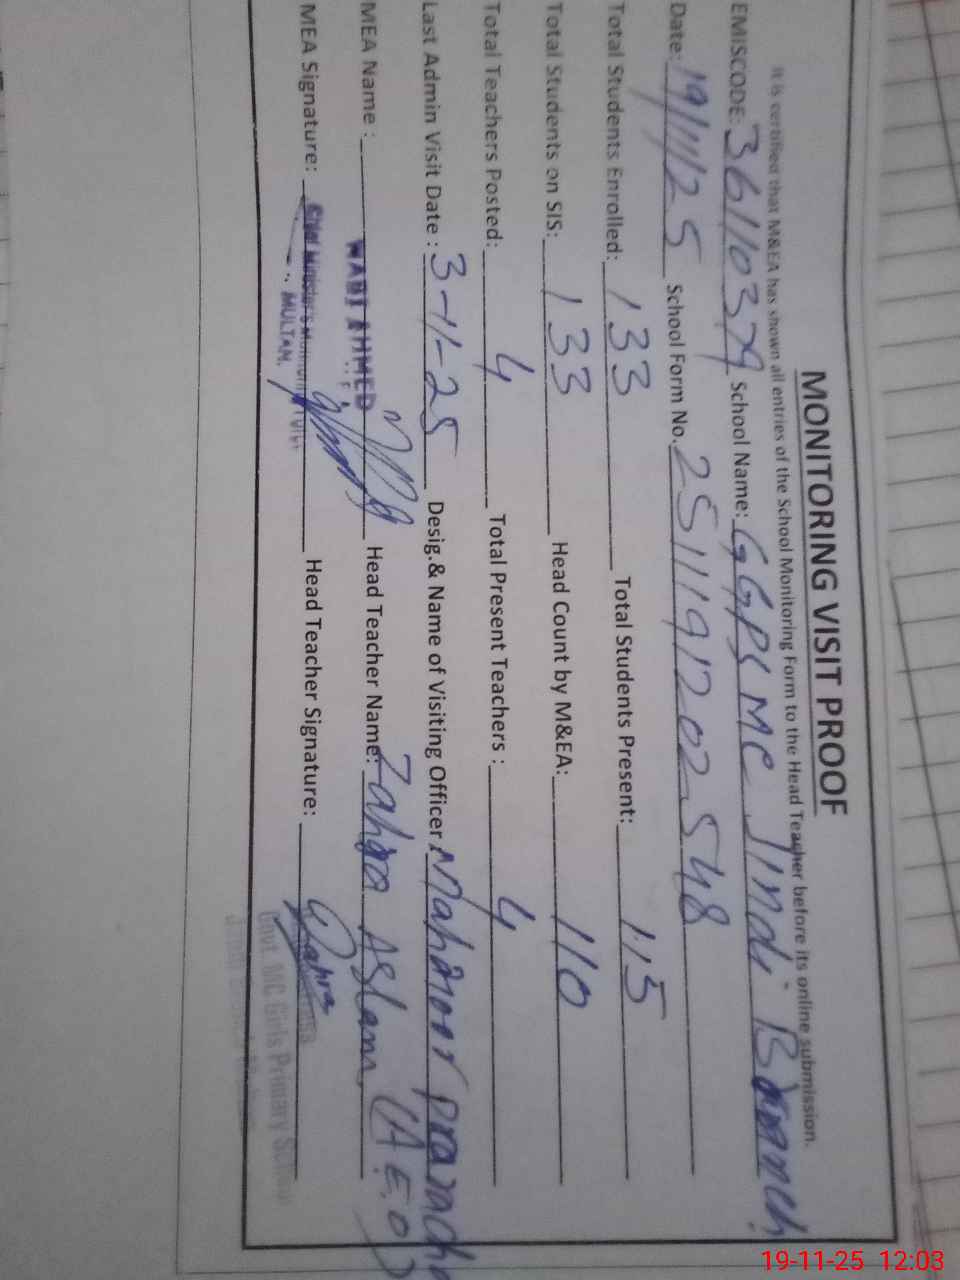 MONITORING VISIT PROOF
It is certified that M&EA has shown all entries of the School Monitoring Form to the Head Teacher before its online submission.
EMISCODE: 36110379 School Name: GGPS MC Jindi Branch
Date: 19/11/25 School Form No. 2511191202548
Total Students Enrolled: 133 Total Students Present: 115
Total Students on SIS: 133 Head Count by M&EA: 110
Total Teachers Posted: 4 Total Present Teachers : 4
Last Admin Visit Date : 3-11-25 Desig.& Name of Visiting Officer: Mahanoor piracha
(A.E.O)
MEA Name : AHMED Head Teacher Name: Zahra Aslam
MEA Signature: Chief Minister's Head Teacher Signature: Zahra
MULTAN.
Govt. MC Girls Primary School
19-11-25 12:03